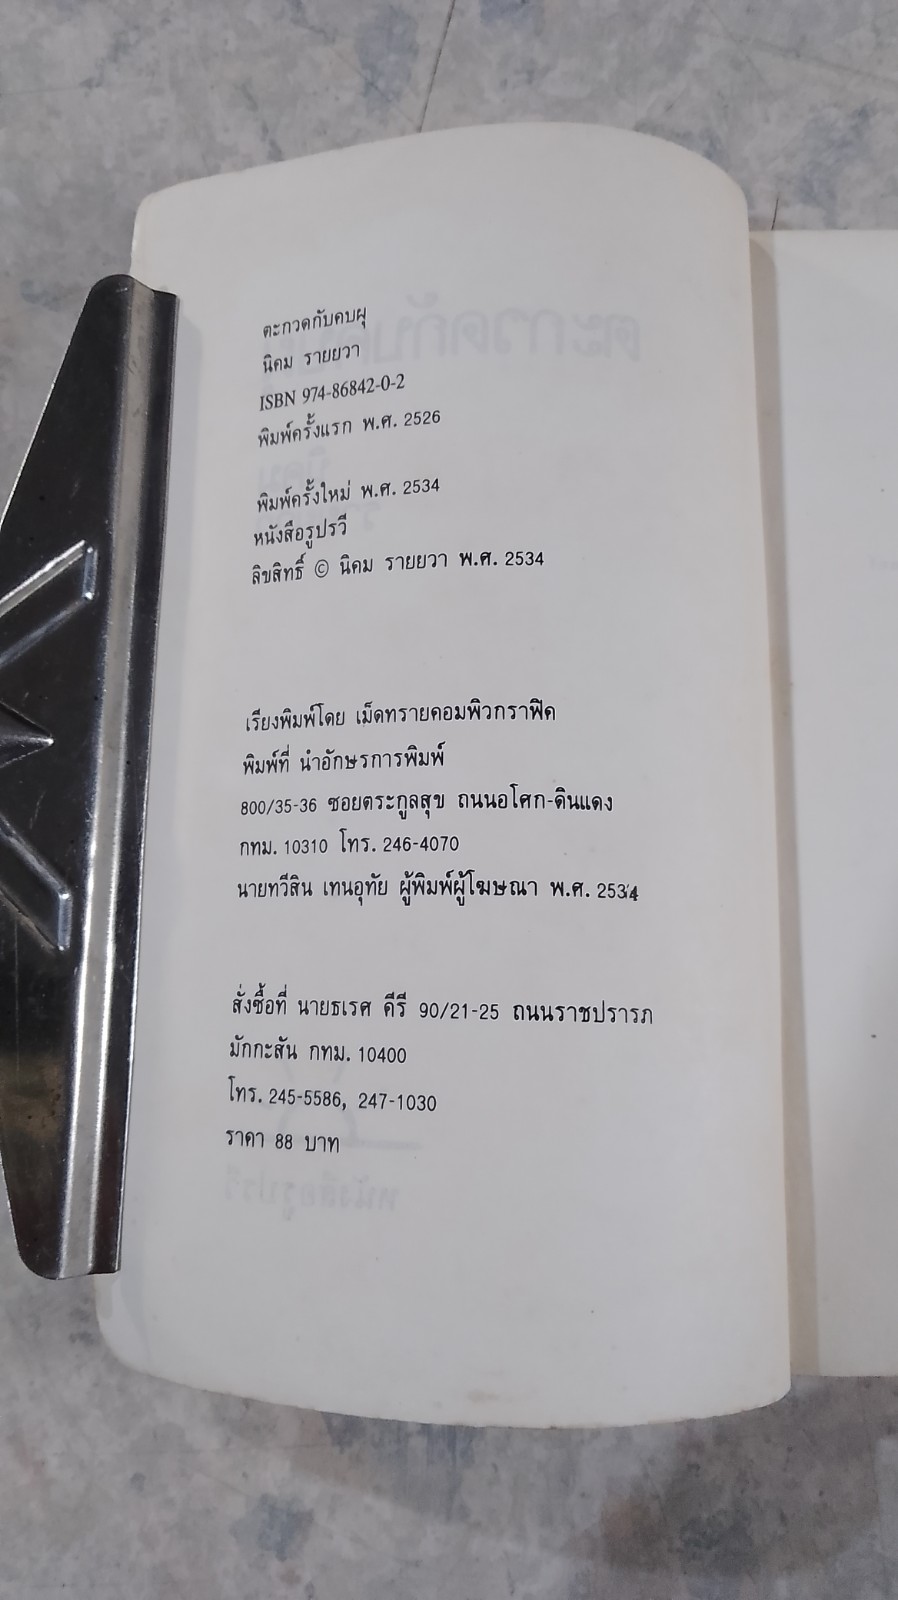 ตะกวดกับคบผุ
นิคม รายยวา
ISBN 974-86842-0-2
พิมพ์ครั้งแรก พ.ศ. 2526
พิมพ์ครั้งใหม่ พ.ศ. 2534
หนังสือรูปรวี
ลิขสิทธิ์ © นิคม รายยวา พ.ศ. 2534
เรียงพิมพ์โดย เม็ดทรายคอมพิวกราฟิค
พิมพ์ที่ นำอักษรการพิมพ์
800/35-36 ซอยตระกูลสุข ถนนอโศก-ดินแดง
กทม. 10310 โทร. 246-4070
นายทวีสิน เทนอุทัย ผู้พิมพ์ผู้โฆษณา พ.ศ. 2534
สั่งซื้อที่ นายธเรศ คีรี 90/21-25 ถนนราชปรารภ
มักกะสัน กทม. 10400
โทร. 245-5586, 247-1030
ราคา 88 บาท